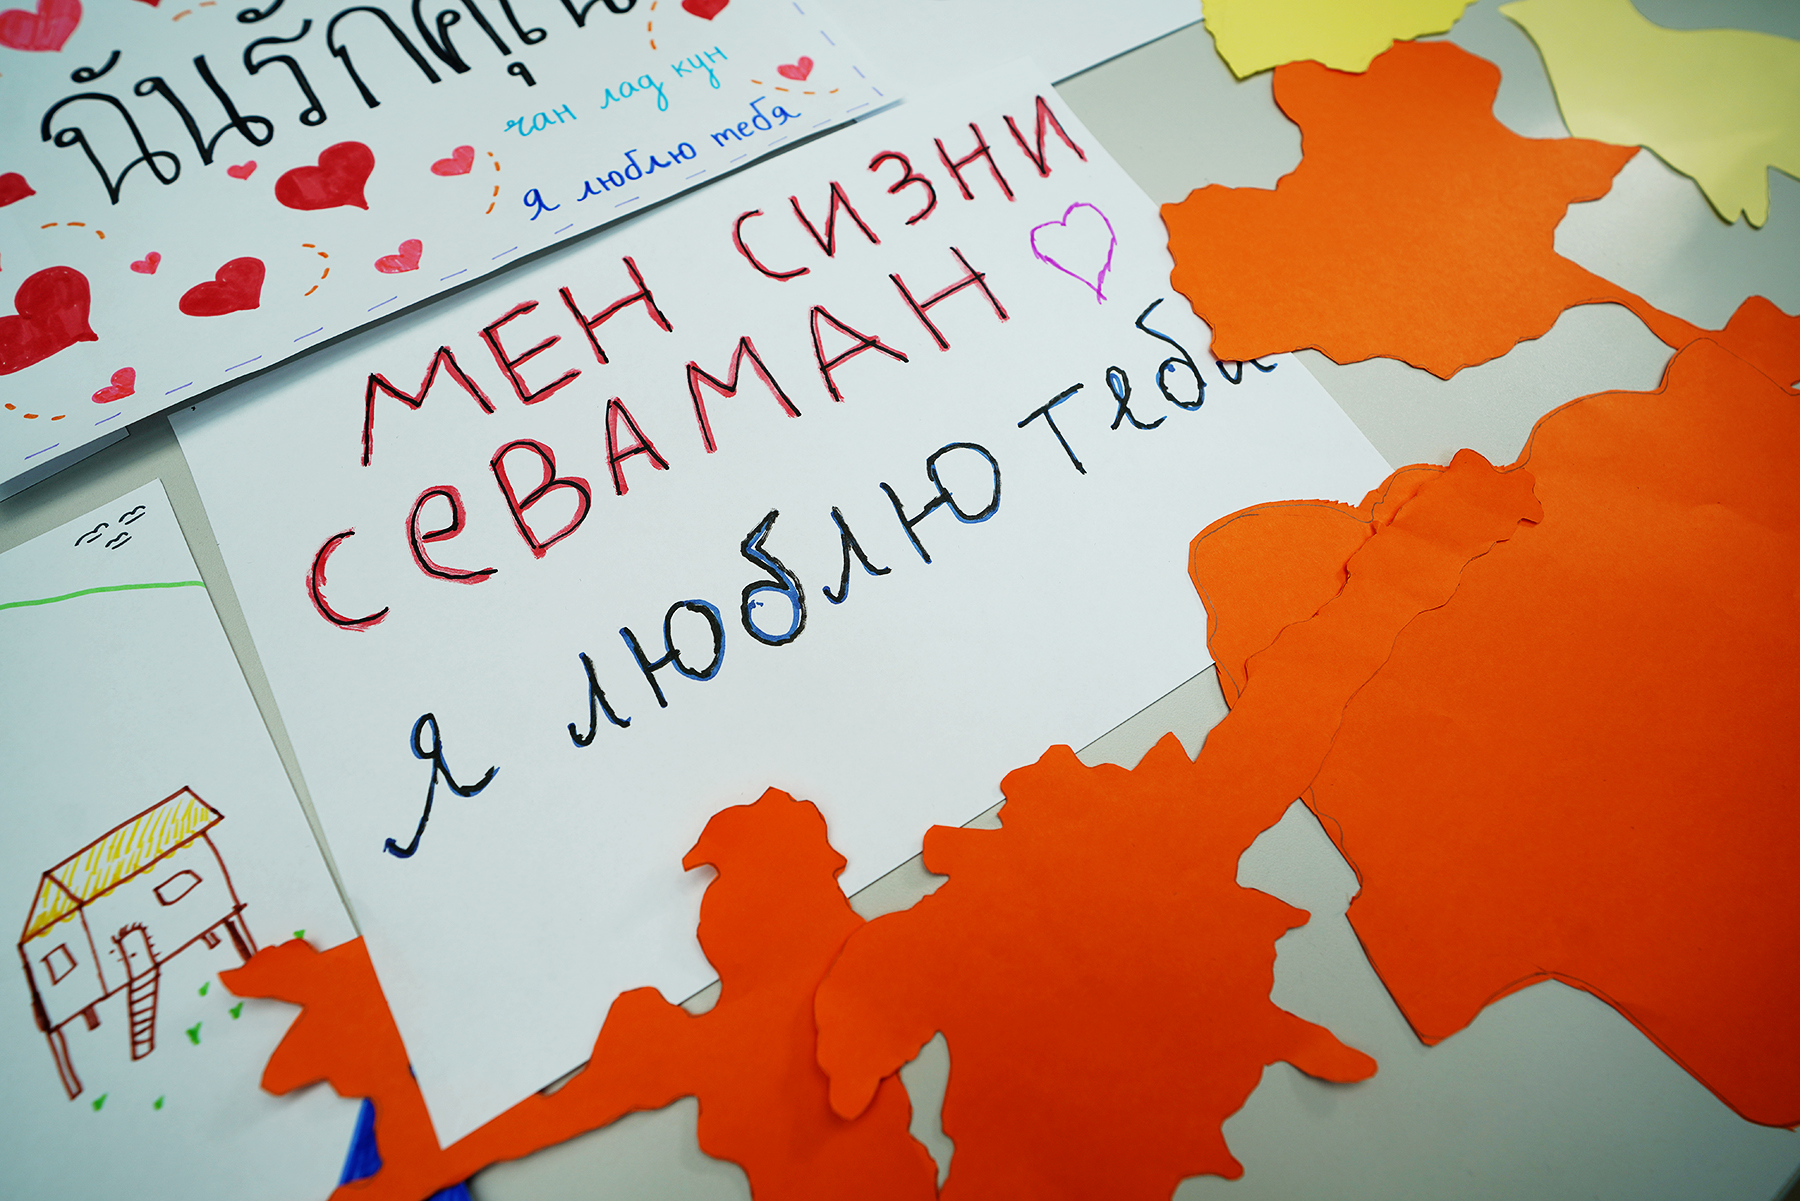 ฉันรักคุณ
чан лад кун
я люблю тебя
МЕН СИЗНИ
СЕВАМАН
я люблю тебя